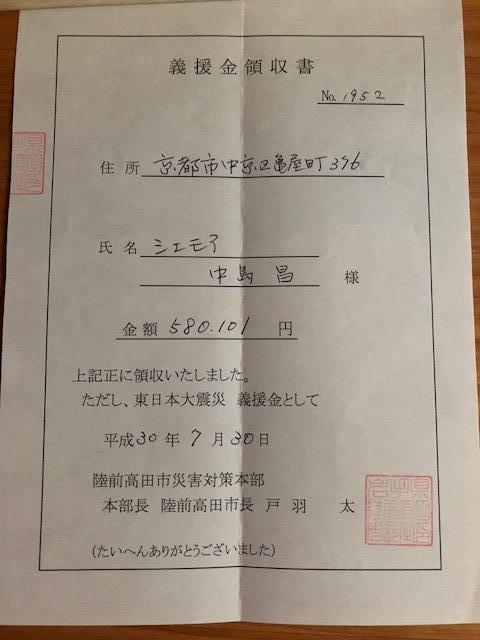 義援金領収書
No. 1952
住所 京都市中京区亀屋町396
氏名 シェモア
中島 昌 様
金額 580.101 円
上記正に領収いたしました。
ただし、東日本大震災 義援金として
平成30年7月30日
陸前高田市災害対策本部
本部長 陸前高田市長 戸羽 太
(たいへんありがとうございました)